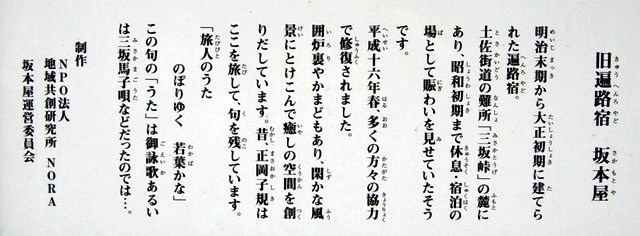 旧遍路宿 坂本屋
明治末期から大正初期に建てら
れた遍路宿。
土佐街道の難所「三坂峠」の麓に
あり、昭和初期まで休息・宿泊の
場として賑わいを見せていたそう
です。
平成十六年春、多くの方々の協力
で修復されました。
囲炉裏やかまどもあり、閑かな風
景にとけこんで癒しの空間を創
りだしています。昔、正岡子規は
ここを旅して、句を残しています。
「旅人のうた
のぼりゆく 若葉かな」
この句の「うた」は御詠歌あるい
は三坂馬子唄などだったのでは…。
制作
NPO法人
地域共創研究所 NORA
坂本屋運営委員会